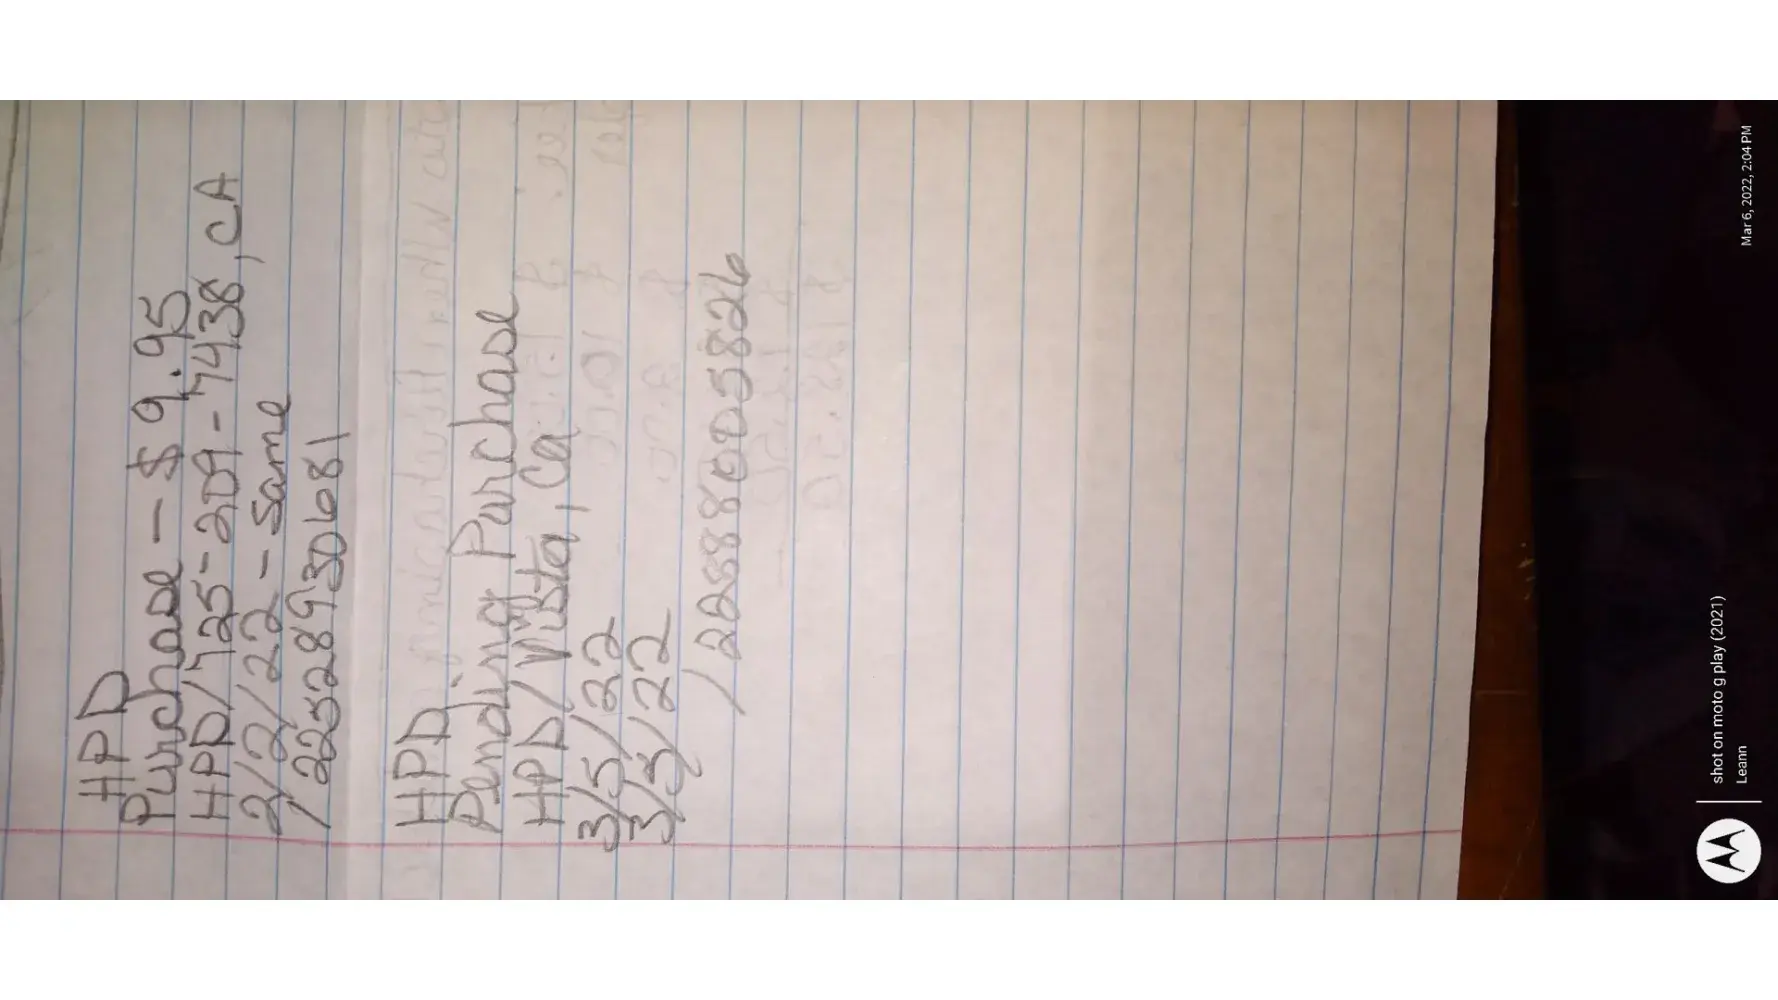 HPD
Purchase - $9.95
HPD/725-209-7438, CA
2/2/22 - Same
/225289730681
HPD
Pending Purchase
HPD/Vista, Ca
3/5/22
3/5/22
/225880005826
shot on moto g play (2021)
Leann
Mar 6, 2022, 2:04 PM